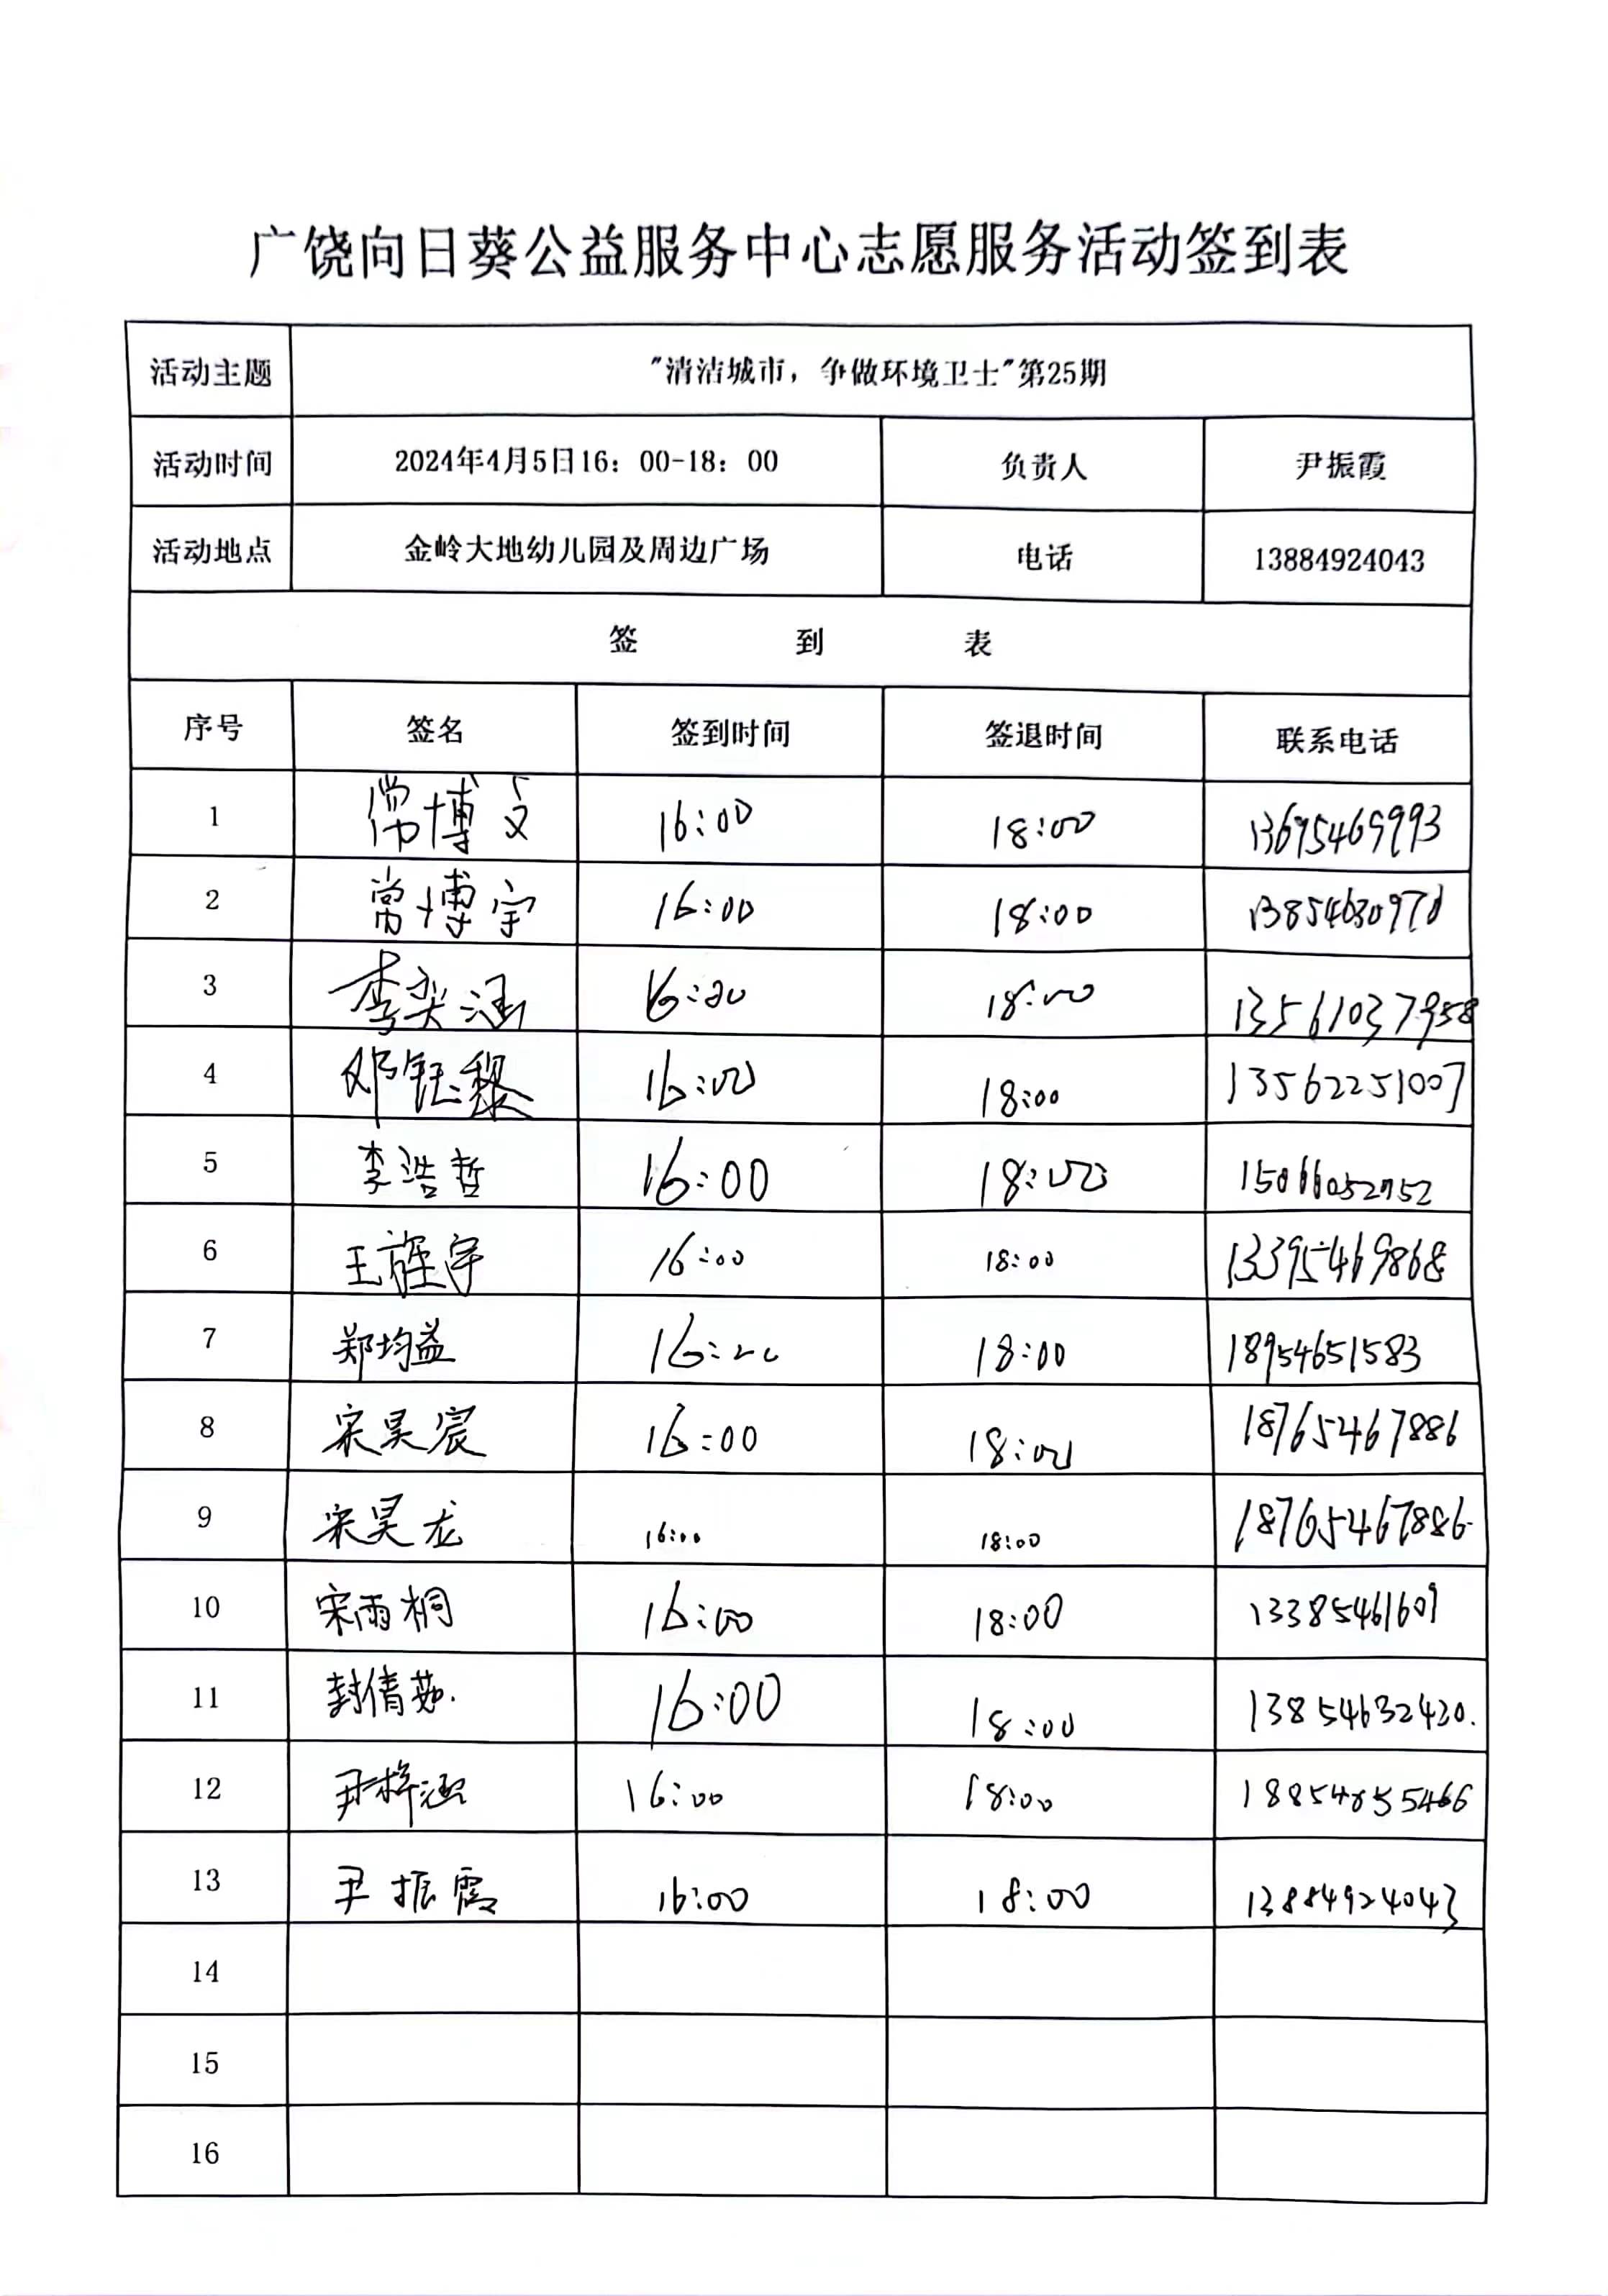 广饶向日葵公益服务中心志愿服务活动签到表
活动主题 "清洁城市，争做环境卫士"第25期
活动时间 2024年4月5日16：00-18：00 负责人 尹振霞
活动地点 金岭大地幼儿园及周边广场 电话 13884924043
签 到 表
序号 签名 签到时间 签退时间 联系电话
1 常博文 16:00 18:00 13695469993
2 常博宇 16:00 18:00
3 李奕涵 16:00 18:00 13561037958
4 邓钰黎 16:00 18:00 13562251007
5 李浩哲 16:00 18:00 15066052952
6 王宇 16:00 18:00 13395469868
7 郑均益 16:00 18:00 18954651583
8 宋昊宸 16:00 18:00 18765467886
9 宋昊龙 16:00 18:00 18765467886
10 宋雨桐 16:00 18:00 13385461601
11 封倩茹. 16:00 18:00 13854632420.
12 尹梓涵 16:00 18:00
13 尹振霞 16:00 18:00 13884924043
14
15
16